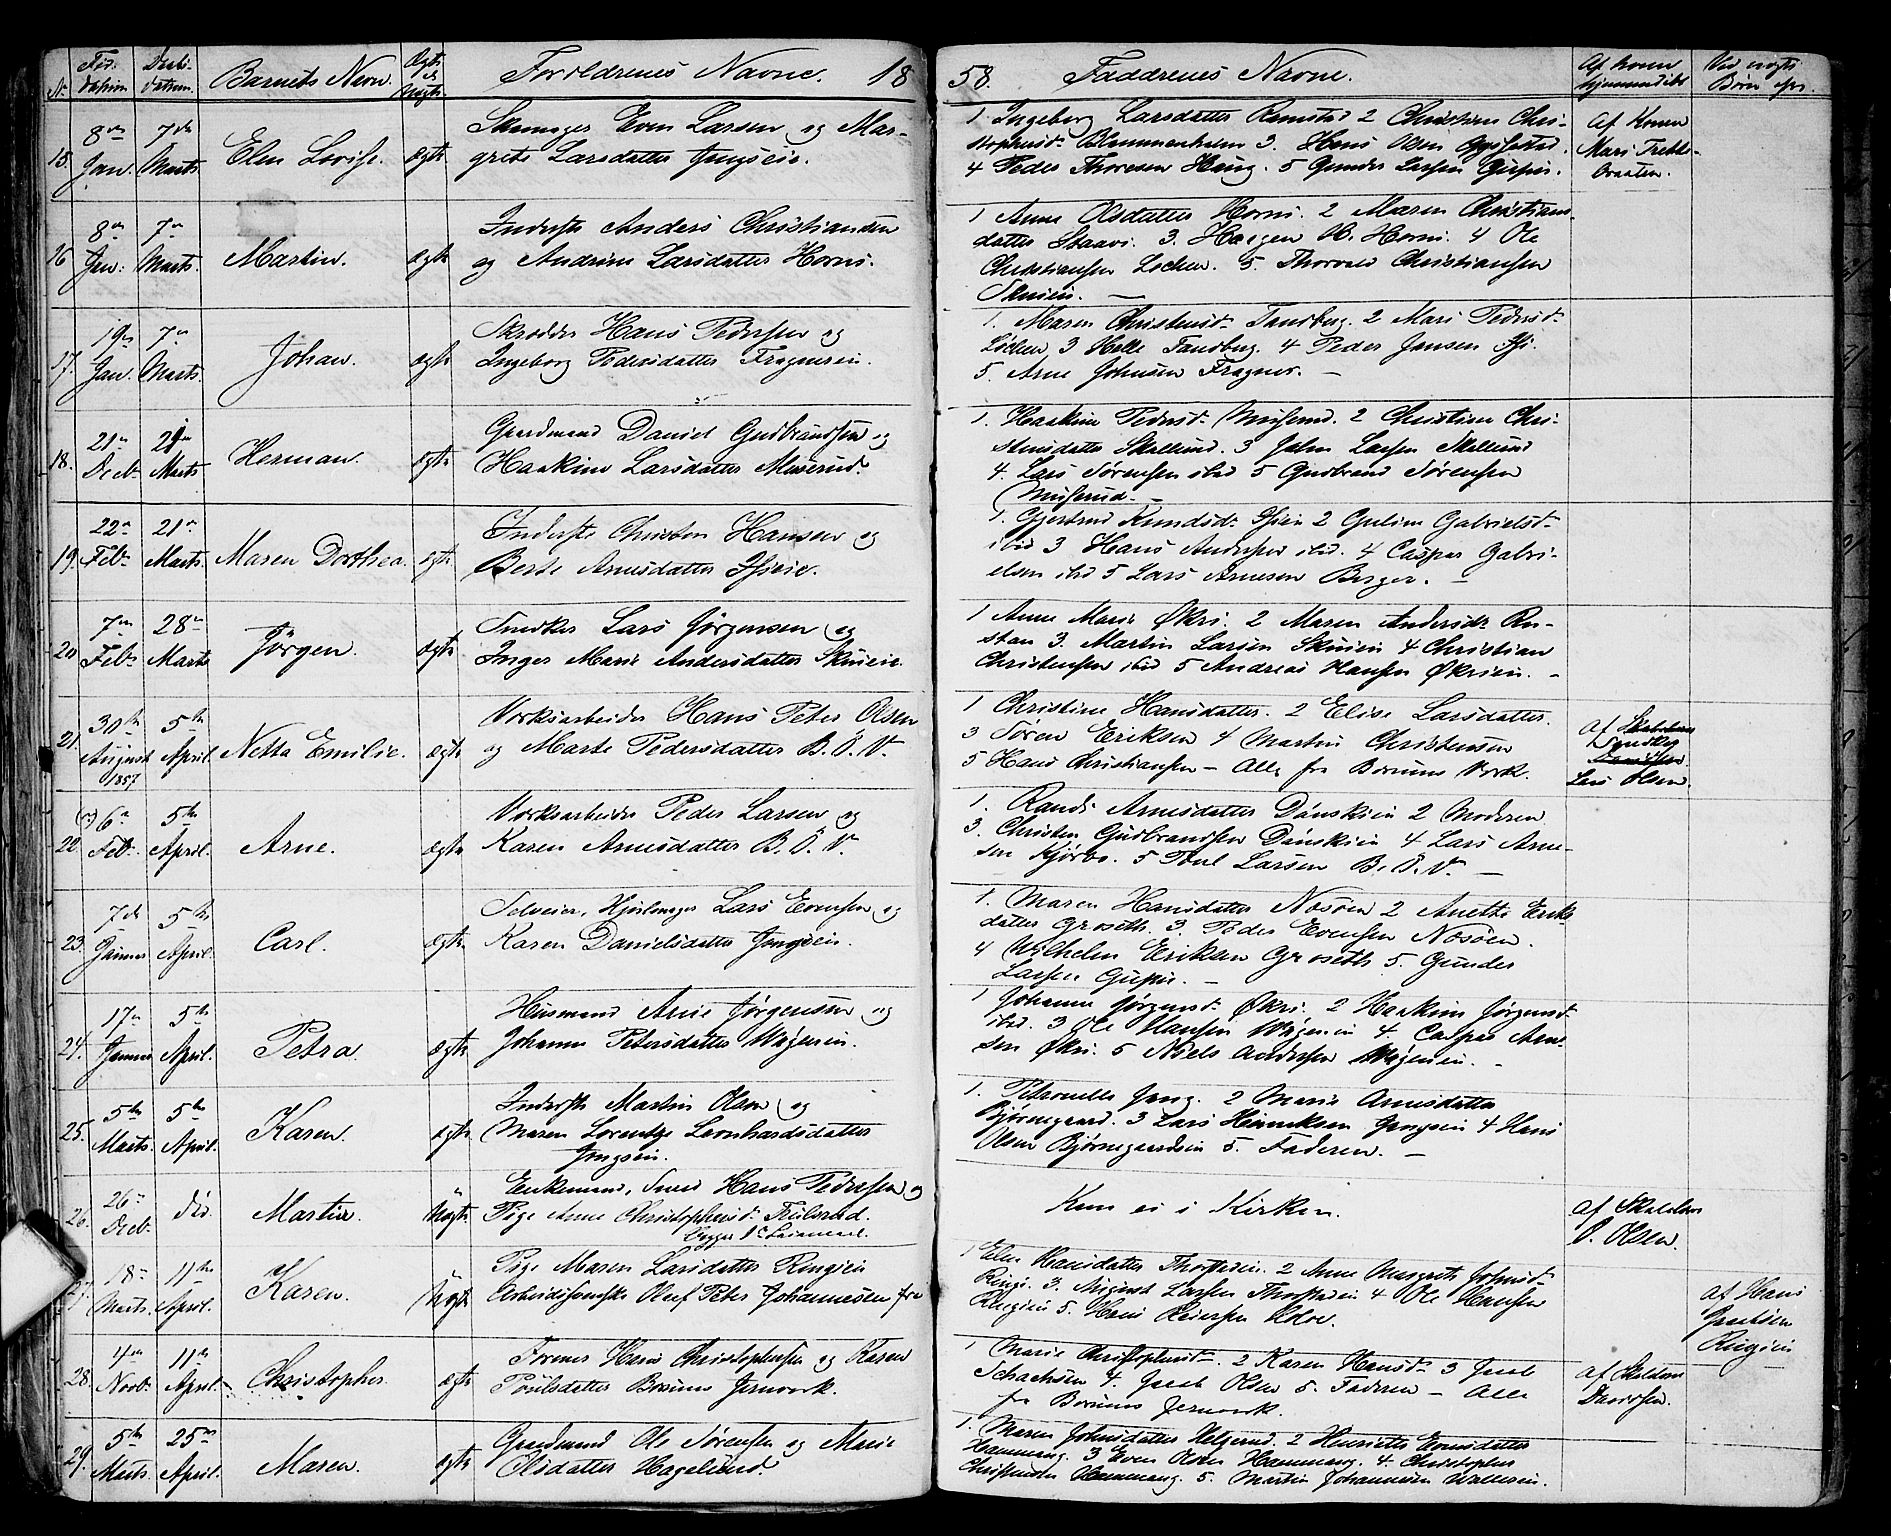 Nr Fød. datum Daab. datum. Barnets Navn. Ægte el. Uægte Forældrenes Navne. 18
58. Faddrenes Navne. Af hvem hjemmedøbt Ved uægte Børn
15. 8de Jan. 7de Marts Elen Lovise. ægte Skomager Even Larsen og Mar-
grete Larsdatter Jongseie.
1. Ingeborg Larsdatter Ramstad 2 Christine Chri-
stophersd. Blommenholm 3. Hans Olsen
4 Peder Thoresen Haug. 5 Gunder Larsen Gupu.
af Konen
Mari
Braaten.
16 8de Jan: 7de Marts. Martin. ægte Inderste Anders Christiansen
og Andrine Larsdatter Horni.
1 Anne Olsdatter Horni. 2 Maren Christians-
datter Staavi. 3. Haagen Horni. 4 Ole
Christiansen Løchen. 5. Thorvald Christiansen
Skuiei. —
17. 19de Jan. 7de Marts. Johan. ægte Skrædder Hans Pedersen og
Ingeborg Pedersdatter Fragnerei.
1. Maren Christensd. Tandberg. 2 Mari Pedersd.
Løchen, 3 Helle Tandberg. 4 Peder Jensen
5. Arne Johnsen Fragner. —
18. 21de Decb. 21de Marts Herman. ægte Gaardmand Daniel Gudbrandsen og
Haakine Larsdatter Muserud.
1. Haakine Pedersd. Muserud. 2 Christine Chri-
stensdatter Skollerud. 3 John Larsen Skollerud
4. Lars Sørensen ibid 5 Gudbrand Sørensen
Muserud. —
19. 22de Feb. 21de Marts. Maren Dorthea. ægte Inderste Christen Hansen og
Berte Arnesdatter Isiei.
1. Gjertrud Knudsd. Isiei 2 Guline Gabrielsd.
ibid 3 Hans Andersen ibid. 4 Caspar Gabri-
elsen ibid 5 Lars Arnesen Berger. —
20 7de Feb. 28de Marts Jörgen. ægte Snedker Lars Jørgensen og
Inger Marie Andersdatter Skuiei.
1 Anne Marie Økri. 2 Maren Andersd.
3. Martin Larsen Skuiei 4 Christian
Christensen ibid 5 Andreas Hansen Økriei. —
21. 30te August 1857 5te April Netta Emilie. ægte Værksarbeider Hans Peter Olsen
og Marte Pedersdatter B. J. V.
1 Christine Hansdatter. 2 Elise Larsdatter.
3 Søren Eriksen 4 Martin Christensen
5 Hans Christiansen — Alle fra Bærums Værk.
af Skoleholder
Lars Olsen.
22 6te Feb. 5te April. Arne. ægte Værksarbeider Peder Larsen og
Karen Arnesdatter B. J. V.
1. Randi Arnesdatter Dønskiei 2 Moderen
3. Christen Gudbrandsen Dønskiei 4 Lars Arne-
sen Kjørbo. 5 Poul Larsen B. J. V. —
23. 7de Januar 5te April. Carl. ægte Selveier, Hjulmager Lars Evensen og
Karen Danielsdatter Jongseie.
1. Maren Hansdatter Nøsøen 2 Anette Eriks-
datter Groseth. 3. Peder Evensen Nøsøen.
4 Wilhelm Eriksen Groseth 5. Gunder
Larsen Gupu. —
24. 17de Januar 5te April. Petra. ægte Husmand Arne Jørgensen og
Johanne Petersdatter Wøjenei.
1 Johanne Jørgensd. Økri. 2 Haakine Jørgensd.
ibid. 3 Ole Hansen Wøjenei 4 Caspar Arne-
sen Økri. 5 Niels Andersen Wøjenei. —
25. 5te Marts. 5te April. Karen. ægte Inderste Martin Olsen og
Maren Lorentze Leonhardsdatter
Jongsei.
1. Petronelle Jong. 2 Marie Arnesdatter
Bjørnegaard. 3 Lars Henriksen Jongsei 4 Hans
Olsen Bjørnegaardsei 5. Faderen. —
26. 26de Decb. død. Martin. Uægte Enkemand, Smed Hans Pedersen og
Pige Anne Christophersd.
Kom ei i Kirken.
af Skoleholder
O. Olsen.
27. 18de Marts. 11te April. Karen. Uægte Pige Maren Larsdatter Ringiei
Arbeidssvend Oluf Peter Johannesen fra
1 Elen Hansdatter 2 Anne Margrete Johnsd.
Ringi. 3. August Larsen 4 Ole Hansen
Ringiei 5. Hans
af Hans
Ringiei
28. 4de Novb. 11te April. Christopher. ægte Former Hans Christophersen og Karen
Poulsdatter Bærums Jernværk.
1 Marie Christophersd. 2 Karen Hansd. 3 Jacob
4. Jacob Olsen 5. Faderen — Alle
fra Bærums Jernværk.
af Skoleholder
Davidsen.
29. 5te Marts. 25de April. Maren. ægte Gaardmand Ole Sørensen og Marie
Olsdatter Hagelund.
1. Maren Johnsdatter Helgerud. 2 Henriette Evensdatter
Hammang. 3 Even Olsen Hammang. 4. Christopher
Christensen Hammang. 5. Martin Johannesen